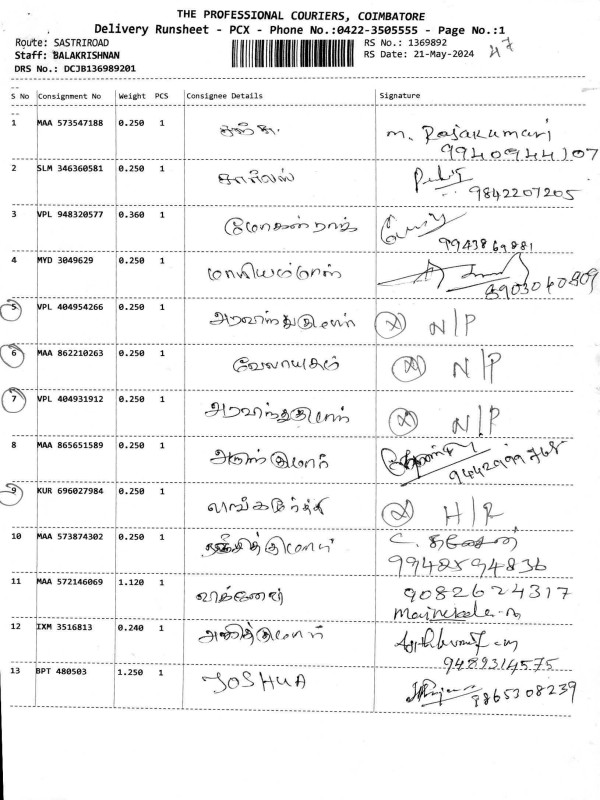 THE PROFESSIONAL COURIERS, COIMBATORE
Delivery Runsheet - PCX - Phone No.:0422-3505555 - Page No.:1
Route: SASTRIROAD RS No.: 1369892 47
Staff: BALAKRISHNAN RS Date: 21-May-2024
DRS No.: DCJB136989201
S No Consignment No Weight PCS Consignee Details Signature
1 MAA 573547188 0.250 1 m. Rajakumari
9940944107
2 SLM 346360581 0.250 1
9842207205
3 VPL 948320577 0.360 1 மோகன்ராஜ்
9943869881
4 MYD 3049629 0.250 1 மாரியம்மாள்
8903040809
5 VPL 404954266 0.250 1 அரவிந்த்குமார் N/P
6 MAA 862210263 0.250 1 வேலாயுதம் N/P
7 VPL 404931912 0.250 1 அரவிந்த்குமார் N/P
8 MAA 865651589 0.250 1 அருண்குமார்
9442999768
9 KUR 696027984 0.250 1
10 MAA 573874302 0.250 1 ரஞ்சித்குமார் C. கணேசன்
9948594836
11 MAA 572146069 1.120 1 9082624317
12 IXM 3516813 0.240 1 அஜித்குமார்
9489314575
13 BPT 480503 1.250 1 JOSHUA
9865308239